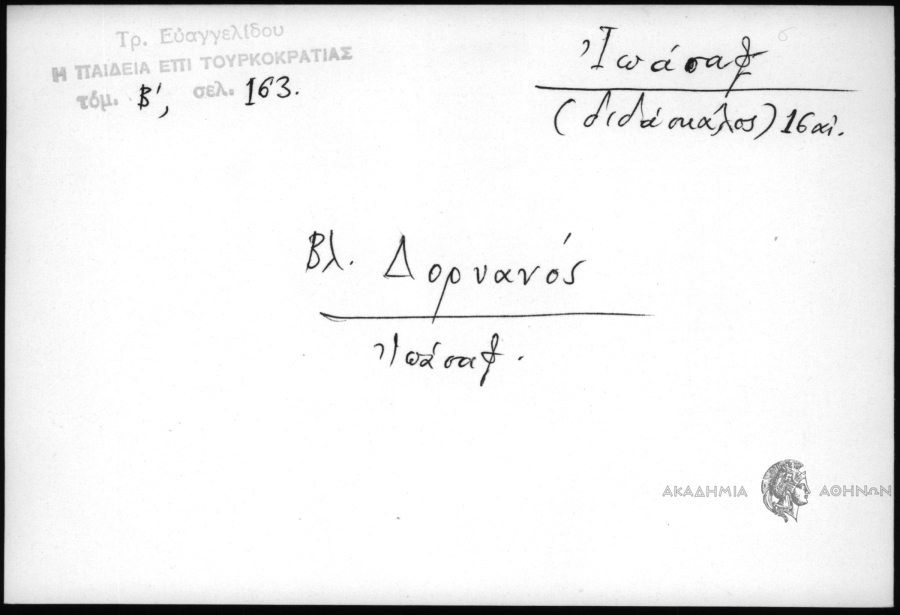 Τρ. Εὐαγγελίδου
Η ΠΑΙΔΕΙΑ ΕΠΙ ΤΟΥΡΚΟΚΡΑΤΙΑΣ
τόμ. Β', σελ. 163.
Ἰωάσαφ
(διδάσκαλος) 16 αἰ.
Βλ. Δορυανός
Ἰωάσαφ.
ΑΚΑΔΗΜΙΑ ΑΘΗΝΩΝ